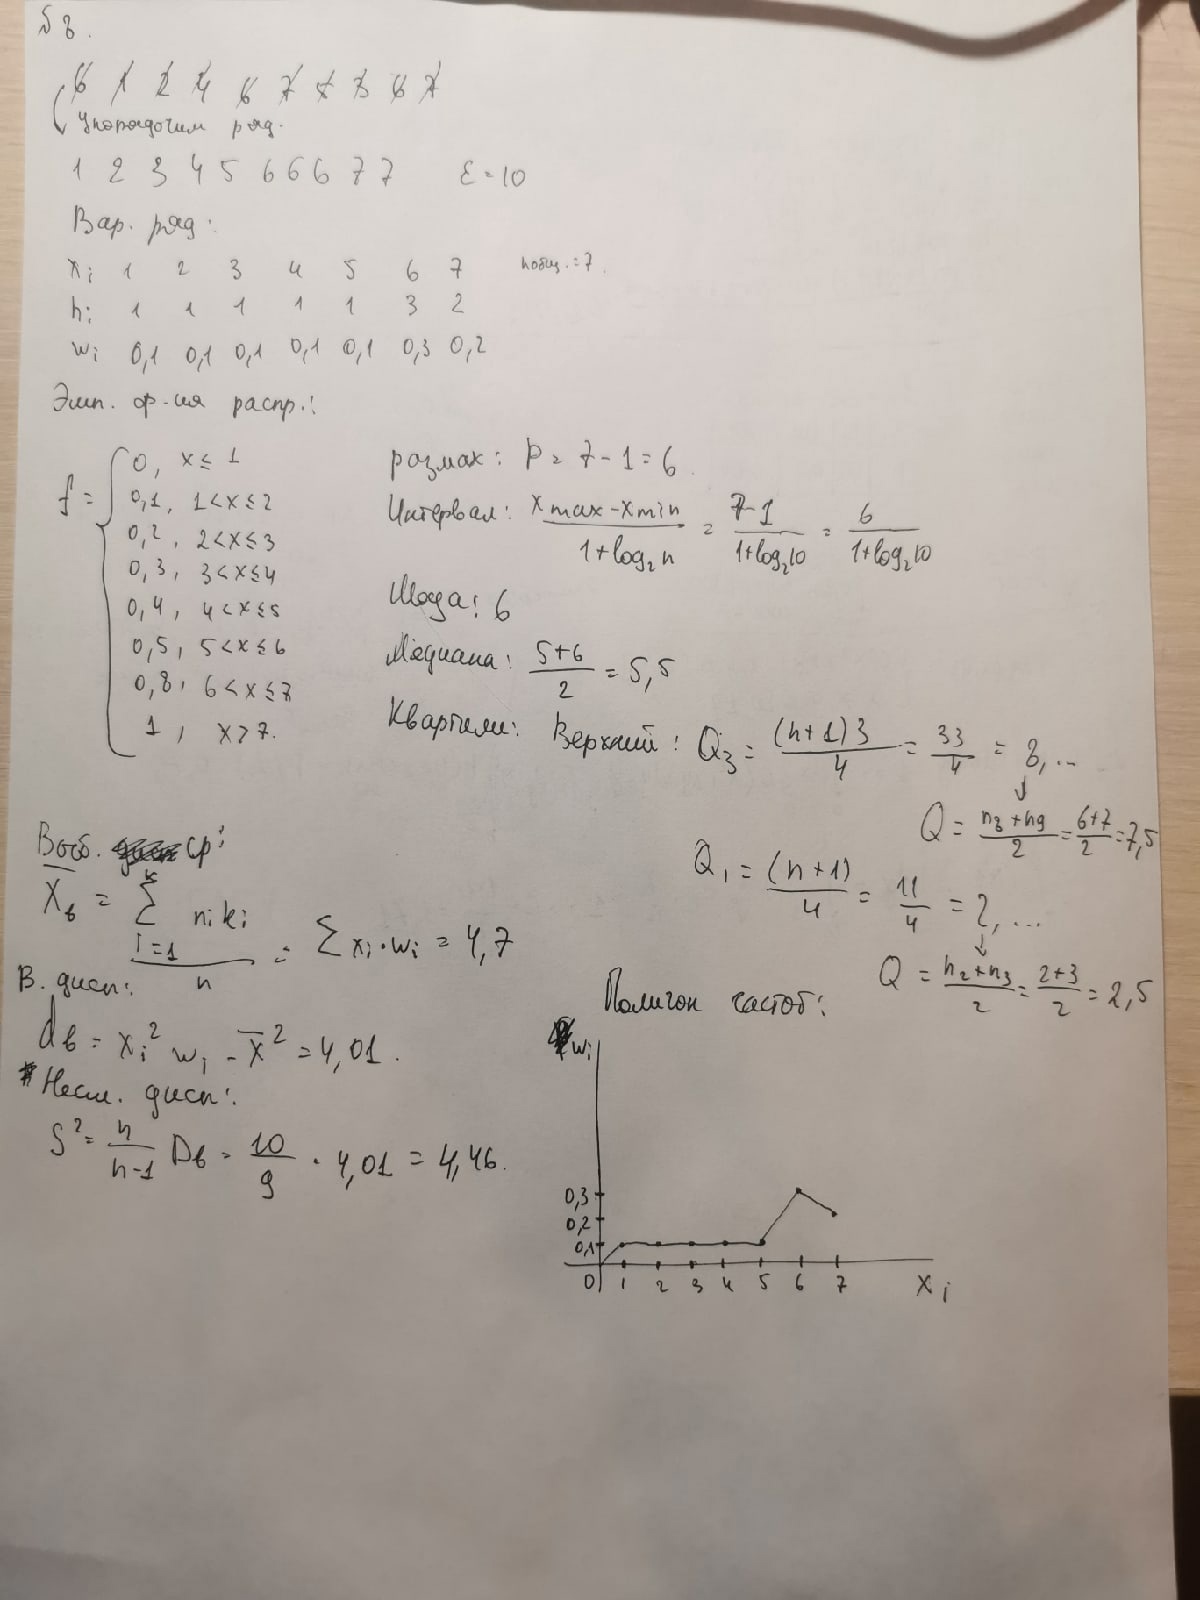 6 1 2 4 6 7 5 3 6 7
Упорядочим ряд.
1 2 3 4 5 6 6 6 7 7 Σ = 10
Вар. ряд:
xi 1 2 3 4 5 6 7
ni 1 1 1 1 1 3 2
wi 0,1 0,1 0,1 0,1 0,1 0,3 0,2
Эмп. ф-ия распр.:
f = { 0, x ≤ 1
0,1, 1 < x ≤ 2
0,2, 2 < x ≤ 3
0,3, 3 < x ≤ 4
0,4, 4 < x ≤ 5
0,5, 5 < x ≤ 6
0,8, 6 < x ≤ 7
1, x > 7.
размах: P = 7 - 1 = 6.
Интервал: (x max - x min)/(1 + log₂ n) = (7-1)/(1 + log₂ 10) = 6/(1 + log₂ 10)
Мода: 6
Медиана: (5+6)/2 = 5,5
Квартили: Верхний: Q₃ = (n+1)3/4 = 33/4 = 8,...
↓
Q = (n₈ + n₉)/2 = (6+7)/2 = 7,5
Q₁ = (n+1)/4 = 11/4 = 2,...
↓
Q = (n₂ + n₃)/2 = (2+3)/2 = 2,5
Выб. ср:
X̄в = Σ i=1 k ni ki / n = Σ xi · wi = 4,7
В. дисп:
dв = xi² wi - x̄² = 4,01.
Несм. дисп:
S² = n/(n-1) Dв = 10/9 · 4,01 = 4,46.
Полигон частот:
wi
0,3
0,2
0,1
0 1 2 3 4 5 6 7 xi